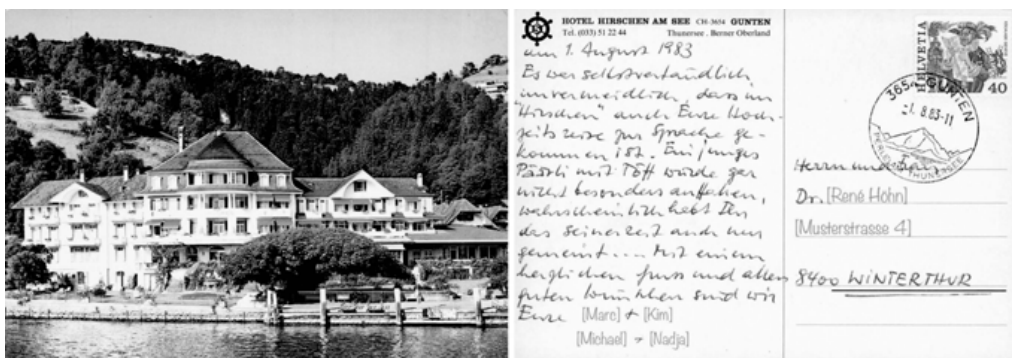 HOTEL HIRSCHEN AM SEE CH-3654 GUNTEN
Tel. (033) 51 22 44 Thunersee . Berner Oberland
am 1. August 1983
Es war selbstverständlich
unvermeidlich, dass im
"Hirschen" auch Eure Hoch-
zeitsreise zur Sprache ge-
kommen ist. Ein junges
Päärli mit Töff würde gar
nicht besonders auffallen,
wahrscheinlich habt Ihr
das seinerzeit auch nur
gemeint... Mit einem
herzlichen Gruss und allen
guten Wünschen sind wir
Eure [Marc] + [Kim]
[Michael] + [Nadja]
HELVETIA
40
GUNTEN
-1. 8.83-11
THUNERSEE
Herrn und Frau
Dr. [René Höhn]
[Musterstrasse 4]
8400 WINTERTHUR